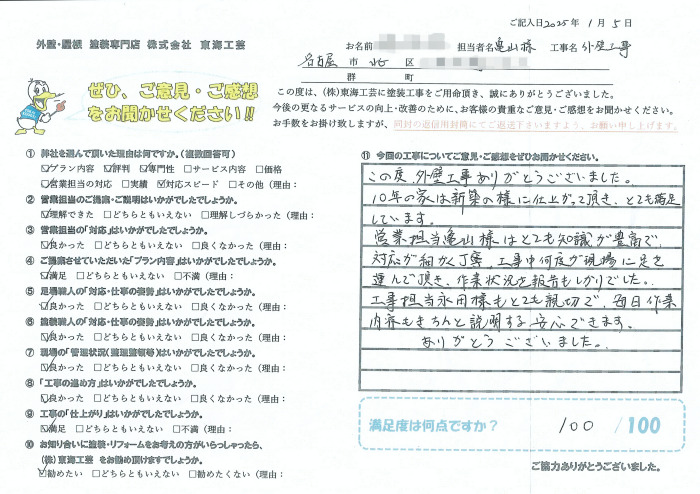 ご記入日2025年 1月 5日
外壁・屋根 塗装専門店 株式会社 東海工芸
お名前 担当者名 亀山様 工事名 外壁工事
名古屋 市 北 区
郡 町
ぜひ、ご意見・ご感想
をお聞かせください!!
この度は、(株)東海工芸に塗装工事をご用命頂き、誠にありがとうございました。
今後の更なるサービスの向上・改善のために、お客様の貴重なご意見・ご感想をお聞かせください。
お手数をお掛け致しますが、同封の返信用封筒にてご返送下さいますよう、お願い申し上げます。
① 弊社を選んで頂いた理由は何ですか。(複数回答可)
☑プラン内容 ☑評判 ☑専門性 □サービス内容 □価格
☑営業担当の対応 □実績 ☑対応スピード □その他(理由:
② 営業担当のご提案・ご説明はいかがでしたでしょうか。
☑理解できた □どちらともいえない □理解しづらかった(理由:
③ 営業担当の「対応」はいかがでしたでしょうか。
☑良かった □どちらともいえない □良くなかった(理由:
④ ご提案させていただいた「プラン内容」はいかがでしたでしょうか。
☑満足 □どちらともいえない □不満(理由:
⑤ 足場職人の「対応・仕事の姿勢」はいかがでしたでしょうか。
☑良かった □どちらともいえない □良くなかった(理由:
⑥ 塗装職人の「対応・仕事の姿勢」はいかがでしたでしょうか。
☑良かった □どちらともいえない □良くなかった(理由:
⑦ 現場の「管理状況(整理整頓等)」はいかがでしたでしょうか。
☑良かった □どちらともいえない □良くなかった(理由:
⑧ 「工事の進め方」はいかがでしたでしょうか。
☑良かった □どちらともいえない □良くなかった(理由:
⑨ 工事の「仕上がり」はいかがでしたでしょうか。
☑満足 □どちらともいえない □不満(理由:
⑩ お知り合いに塗装・リフォームをお考えの方がいらっしゃったら、
(株)東海工芸 をお勧め頂けますでしょうか。
☑勧めたい □どちらともいえない □勧めたくない(理由:
⑪ 今回の工事についてご意見・ご感想をぜひお聞かせください。
この度、外壁工事ありがとうございました。
10年の家は新築の様に仕上がって頂き、とても満足
しています。
営業担当亀山様はとても知識が豊富で、
対応が細かく丁寧、工事中何度か現場に足を
運んで頂き、作業状況を報告もしがりでした。
工事担当永田様もとても親切で、毎日作業
内容もきちんと説明する安心できます。
ありがとうございました。
満足度は何点ですか? 100 /100
ご協力ありがとうございました。